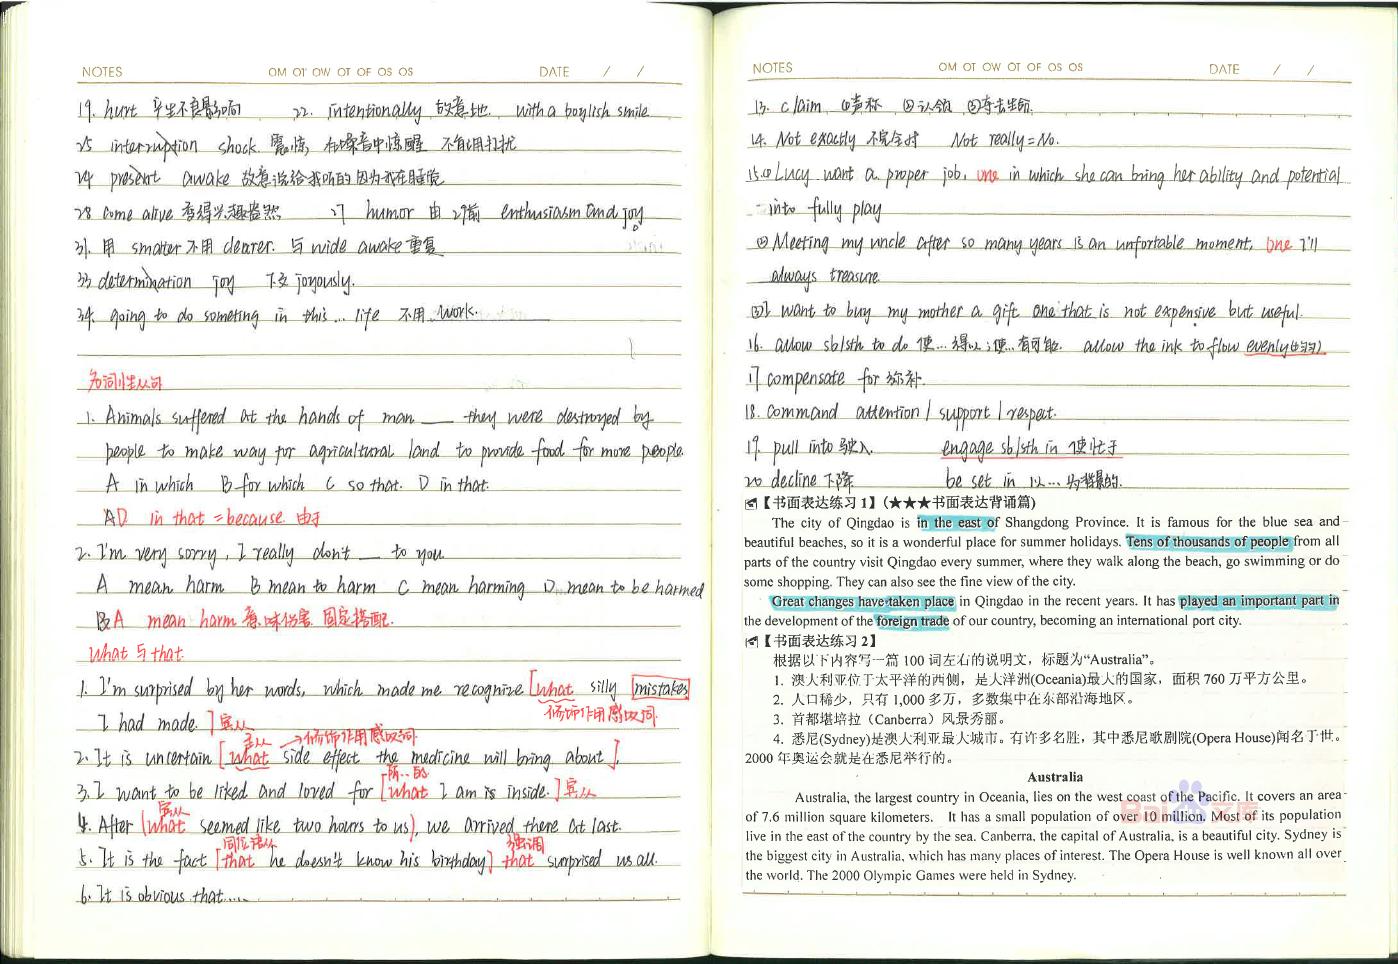 NOTES OM OT OW OT OF OS OS DATE / /
19. hurt 产生不良影响 22. intentionally 故意地. with a boyish smile
25 interruption shock 震惊, 在噪音中惊醒 不能用打扰
24 present awake 故意说给我听的因为我在睡觉
28 come alive 变得兴趣盎然 27 humor 由 29前 enthusiasm and joy
31. 用 smarter 不用 clearer. 与 wide awake 重复
33 determination joy 下文 joyously.
34. going to do someting in this... life 不用 work.
名词性从句
1. Animals suffered at the hands of man ___ they were destroyed by
people to make way for agricultural land to provide food for more people.
A in which B for which C so that. D in that.
AD in that = because 由于
2. I'm very sorry, I really don't __ to you
A mean harm B mean to harm C mean harming D. mean to be harmed
BA mean harm 意味伤害 固定搭配.
What 与 that.
1. I'm surprised by her words, which made me recognize [what silly mistakes
修饰作用感叹词
I had made.] 宾从
主从 →修饰作用感叹词
2. It is uncertain [what side effect the medicine will bring about].
所...的
3. I want to be liked and loved for [what I am is inside.] 宾从
宾从
4. After (what seemed like two hours to us), we arrived there at last.
同位语从 强调
5. It is the fact [that he doesn't know his birthday] that surprised us all.
6. It is obvious that.....
NOTES OM OT OW OT OF OS OS DATE / /
13. claim ①声称 ②认领 ③夺去生命
14. Not exactly 不完全对 Not really = No.
15.① Lucy want a proper job, one in which she can bring her ability and potential
into fully play
② Meeting my uncle after so many years is an unfortable moment, one I'll
always treasure
③ I want to buy my mother a gift one that is not expensive but useful.
16. allow sb/sth to do 使...得以; 使...有可能. allow the ink to flow evenly(均匀)
17 compensate for 弥补.
18. command attention / support / respect.
19. pull into 驶入. engage sb/sth in 使忙于
20 decline 下降 be set in 以...为背景的.
【书面表达练习 1】(★★★书面表达背诵篇)
The city of Qingdao is in the east of Shangdong Province. It is famous for the blue sea and
beautiful beaches, so it is a wonderful place for summer holidays. Tens of thousands of people from all
parts of the country visit Qingdao every summer, where they walk along the beach, go swimming or do
some shopping. They can also see the fine view of the city.
Great changes have taken place in Qingdao in the recent years. It has played an important part in
the development of the foreign trade of our country, becoming an international port city.
【书面表达练习 2】
根据以下内容写一篇 100 词左右的说明文，标题为“Australia”。
1. 澳大利亚位于太平洋的西侧，是大洋洲(Oceania)最大的国家，面积 760 万平方公里。
2. 人口稀少，只有 1,000 多万，多数集中在东部沿海地区。
3. 首都堪培拉（Canberra）风景秀丽。
4. 悉尼(Sydney)是澳大利亚最大城市。有许多名胜，其中悉尼歌剧院(Opera House)闻名于世。
2000 年奥运会就是在悉尼举行的。
Australia
Australia, the largest country in Oceania, lies on the west coast of the Pacific. It covers an area
of 7.6 million square kilometers. It has a small population of over 10 million. Most of its population
live in the east of the country by the sea. Canberra, the capital of Australia, is a beautiful city. Sydney is
the biggest city in Australia, which has many places of interest. The Opera House is well known all over
the world. The 2000 Olympic Games were held in Sydney.
Bai 文库